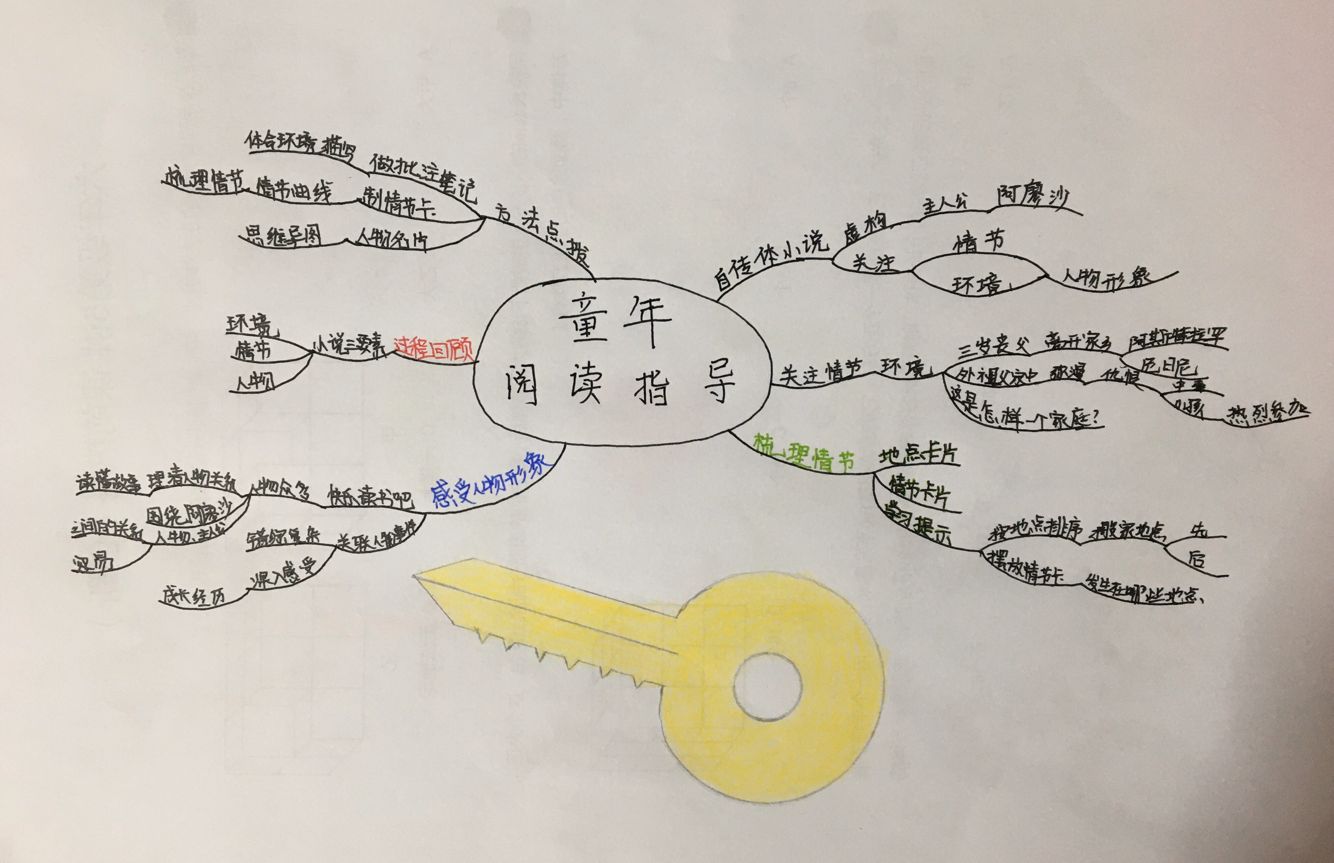 童年
阅读指导
自传体小说
虚构
主人公
阿廖沙
关注
情节
环境
人物形象
关注情节
环境
三岁丧父
离开家乡
外祖父家中
弥漫
仇恨
这是怎样一个家庭?
热烈参加
梳理情节
地点卡片
情节卡片
学习提示
按地点排序
搬家地点
先
后
摆放情节卡
发生在哪些地点、
感受人物形象
快乐读书吧
人物众多
理清人物关系
读懂故事
围绕阿廖沙
人物、主人公
之间的关系
关联人物事件
错综复杂
深入感受
成长经历
过程回顾
小说三要素
环境
情节
人物
方法点拨
做批注笔记
体会环境描写
制情节卡
情节曲线
梳理情节
人物名片
思维导图